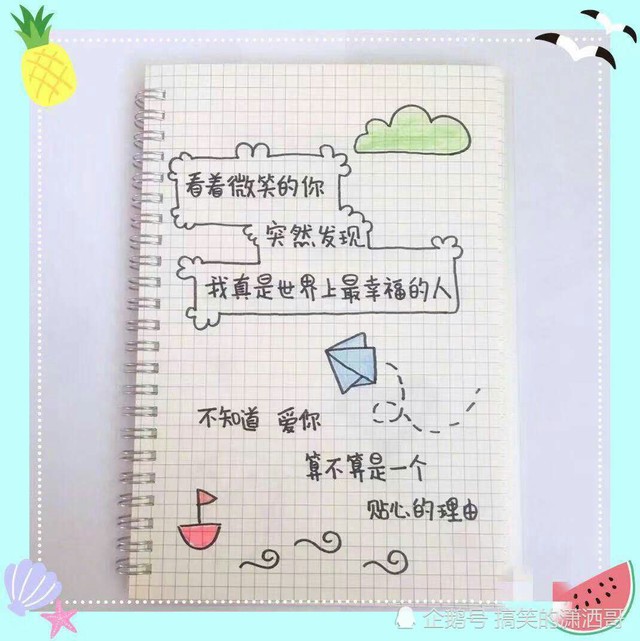 看着微笑的你
突然发现
我真是世界上最幸福的人
不知道 爱你
算不算是一个
贴心的理由
企鹅号 搞笑的潇洒哥